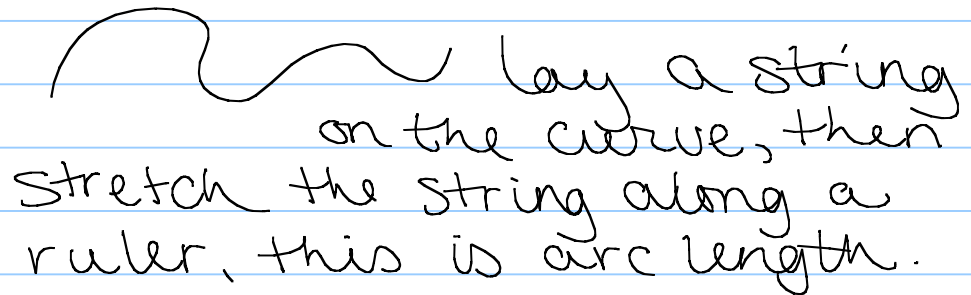 lay a string
on the curve, then
stretch the string along a
ruler, this is arc length.